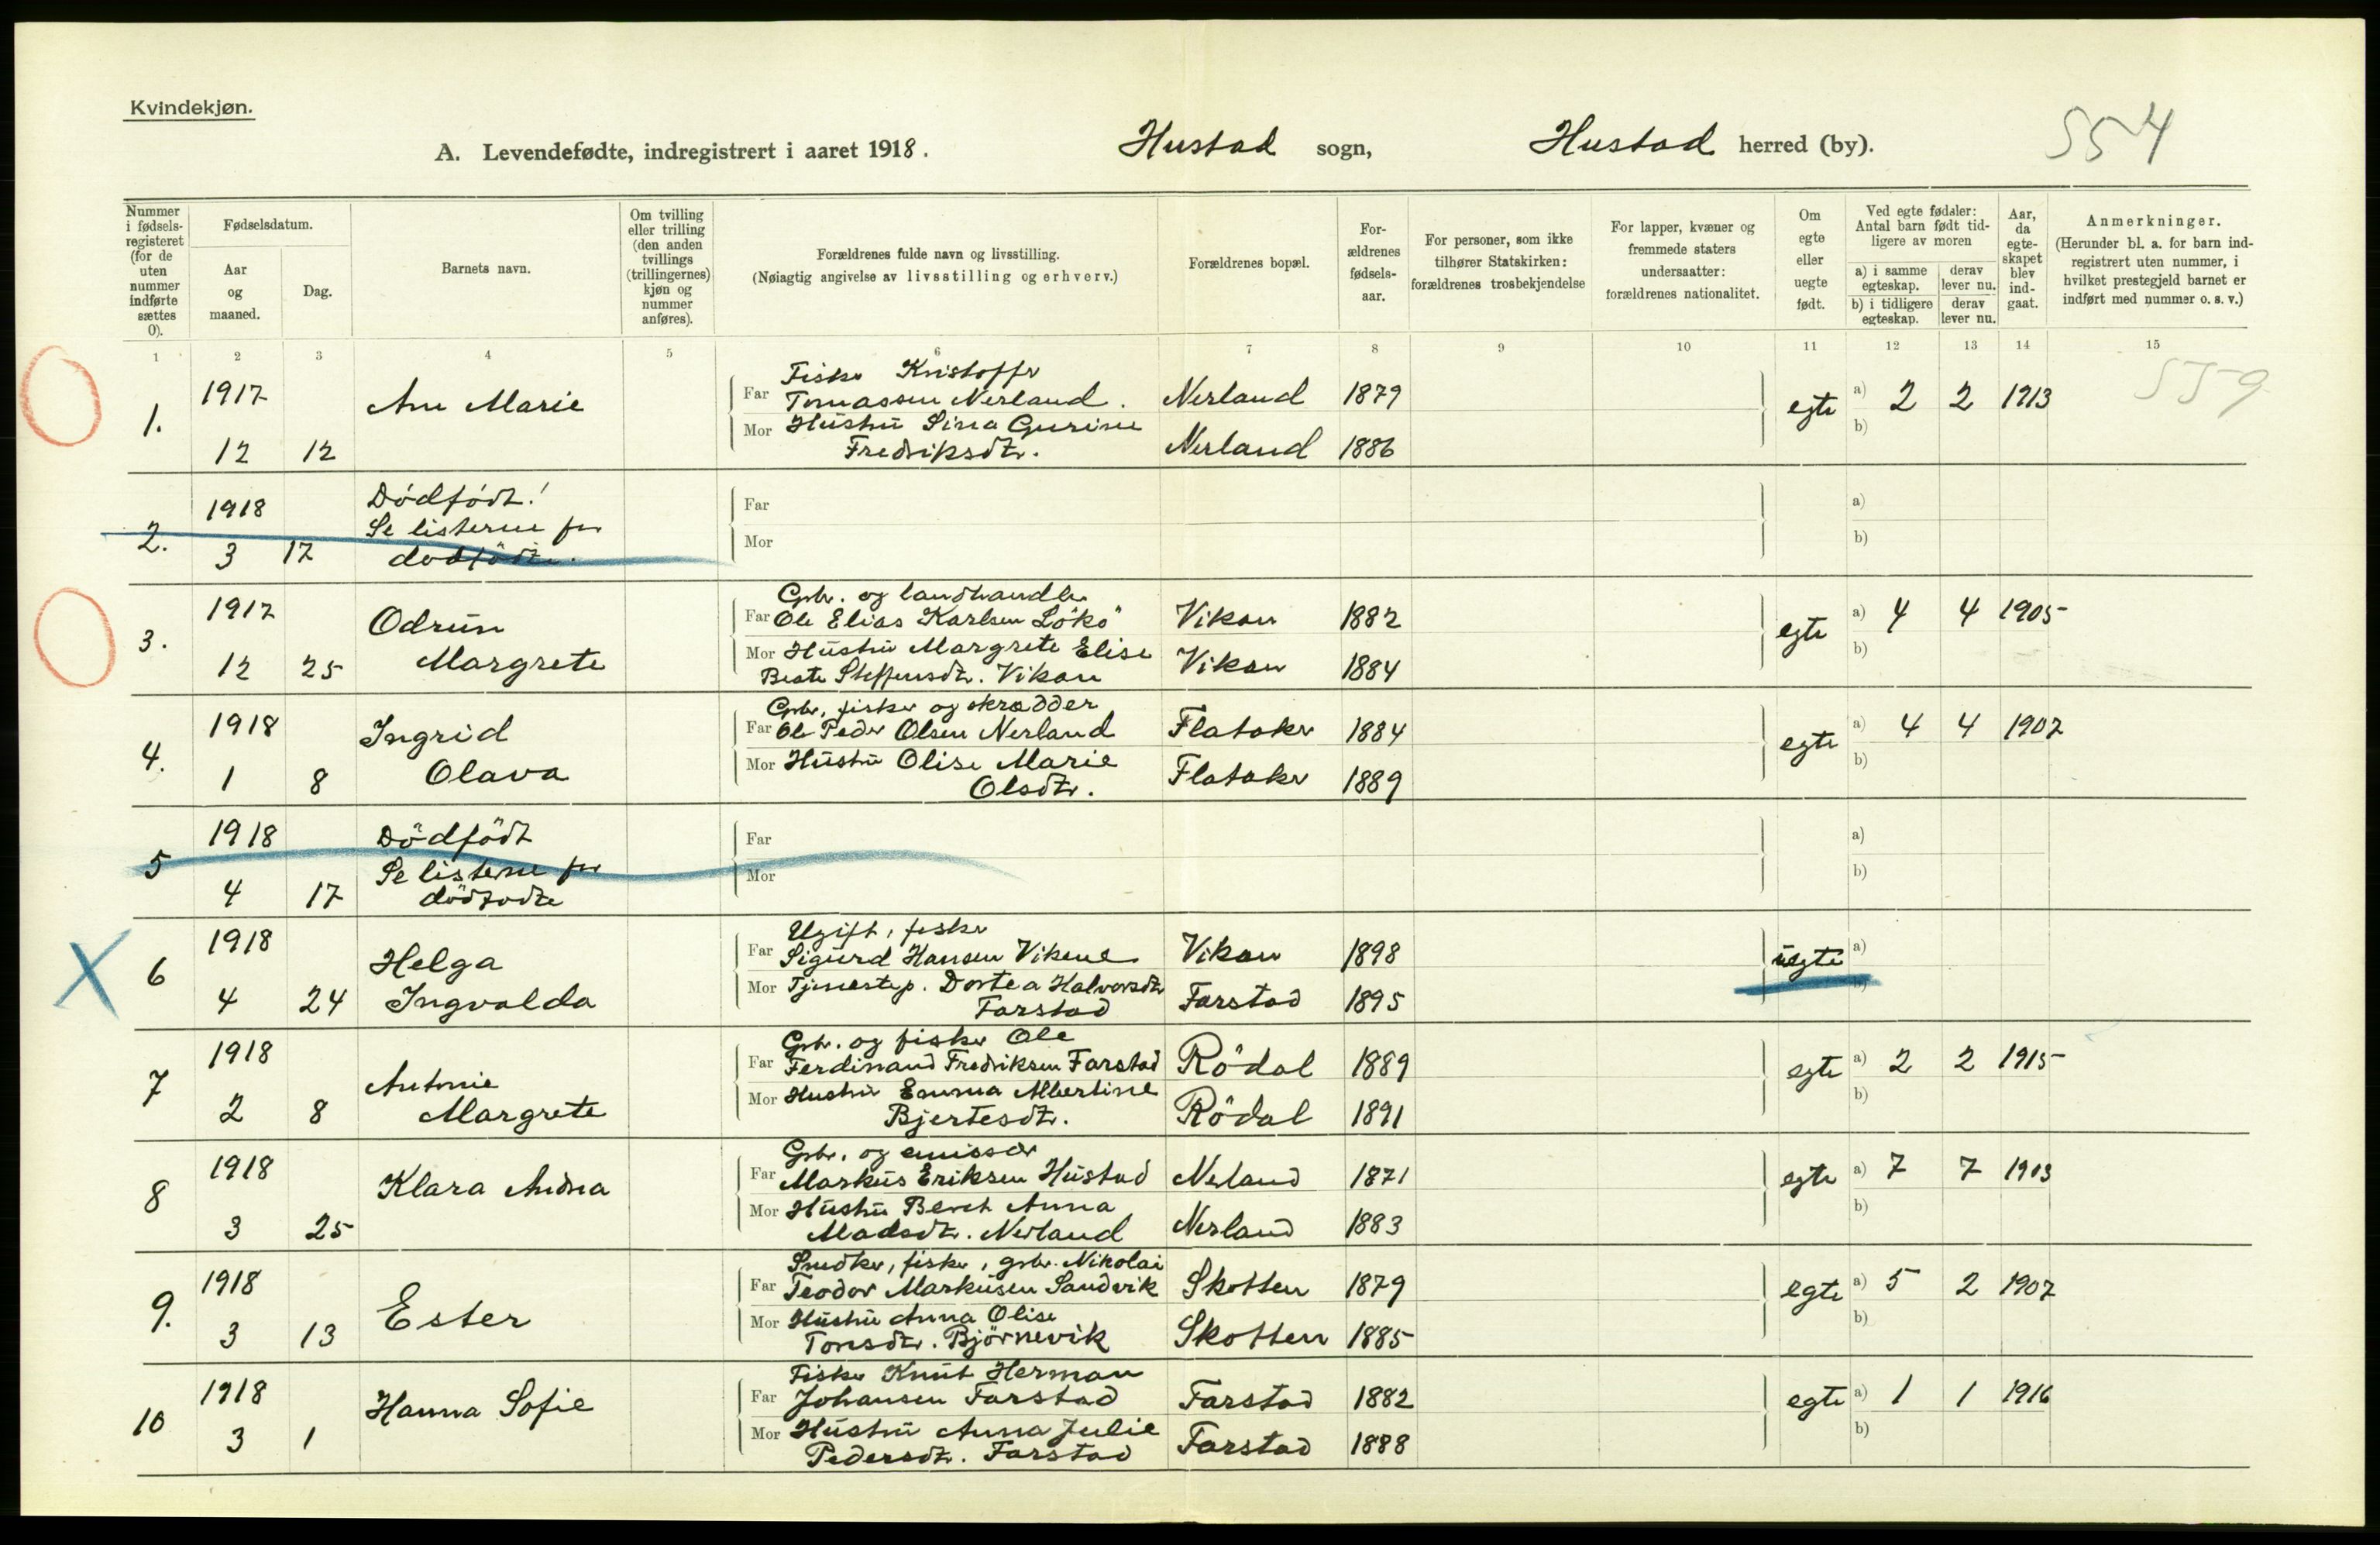 Kvindekjøn.
A. Levendefødte, indregistrert i aaret 1918. Hustad sogn, Hustad herred (by). 554
Nummer i fødselsregisteret (for de uten nummer indførte sættes 0).
Fødselsdatum.
Aar og maaned.
Dag.
Barnets navn.
Om tvilling eller trilling (den anden tvillings (trillingernes) kjøn og nummer anføres).
Forældrenes fulde navn og livsstilling.
(Nøiagtig angivelse av livsstilling og erhverv.)
Forældrenes bopæl.
Forældrenes fødselsaar.
For personer, som ikke tilhører Statskirken: forældrenes trosbekjendelse
For lapper, kvæner og fremmede staters undersaatter: forældrenes nationalitet.
Om egte eller uegte født.
Ved egte fødsler: Antal barn født tidligere av moren
a) i samme egteskap. derav lever nu.
b) i tidligere egteskap. derav lever nu.
Aar, da egteskapet blev indgaat.
Anmerkninger.
(Herunder bl. a. for barn indregistrert uten nummer, i hvilket prestegjeld barnet er indført med nummer o. s. v.)
1 2 3 4 5 6 7 8 9 10 11 12 13 14 15
559
1. 1917 12 12 Anu Marie
Fisker Kristoffer
Far Tomassen Nerland. Nerland 1879
Mor Hustru Sina Gurine
Fredriksdtr. Nerland 1886
egte a) 2 2 1913
b)
2. 1918 3 17 Dødfødt!
Se listerne for
dødfødte.
Far
Mor
a)
b)
3. 1917 12 25 Odrun
Margrete
Gbr. og landhandler
Far Ole Elias Karlsen Lökö Vikan 1882
Mor Hustru Margrete Elise
Beate Steffensdtr. Vikan Vikan 1884
egte a) 4 4 1905
b)
4. 1918 1 8 Ingrid
Olava
Gbr., fisker og skrædder
Far Ole Peder Olsen Nerland Flataker 1884
Mor Hustru Olise Marie
Olsdtr. Flataker 1889
egte a) 4 4 1907
b)
5 1918 4 17 Dödfödt
Se listerne for
dödfødte
Far
Mor
a)
b)
6 1918 4 24 Helga
Ingvalda
Ugift, fisker
Far Sigurd Hansen Vikene Vikan 1898
Mor Tjenestep. Dortea Halvorsdtr
Farstad Farstad 1895
uegte a)
b)
7 1918 2 8 Antonie
Margrete
Gbr. og fisker Ole
Far Ferdinand Fredriksen Farstad Rödal 1889
Mor Hustru Emma Albertine
Bjertesdtr. Rödal 1891
egte a) 2 2 1915
b)
8 1918 3 25 Klara Andna
Gbr. og emissær
Far Markus Eriksen Hustad Nerland 1871
Mor Hustru Beret Anna
Madsdtr. Nerland Nerland 1883
egte a) 7 7 1903
b)
9. 1918 3 13 Ester
Snedker, fisker, gbr. Nikolai
Far Teodor Markusen Sandvik Skotten 1879
Mor Hustru Anna Olise
Toresdtr. Björnevik Skotten 1885
egte a) 5 2 1907
b)
10 1918 3 1 Hanna Sofie
Fisker Knut Herman
Far Johansen Farstad Farstad 1882
Mor Hustru Anna Julie
Pedersdtr. Farstad Farstad 1888
egte a) 1 1 1916
b)